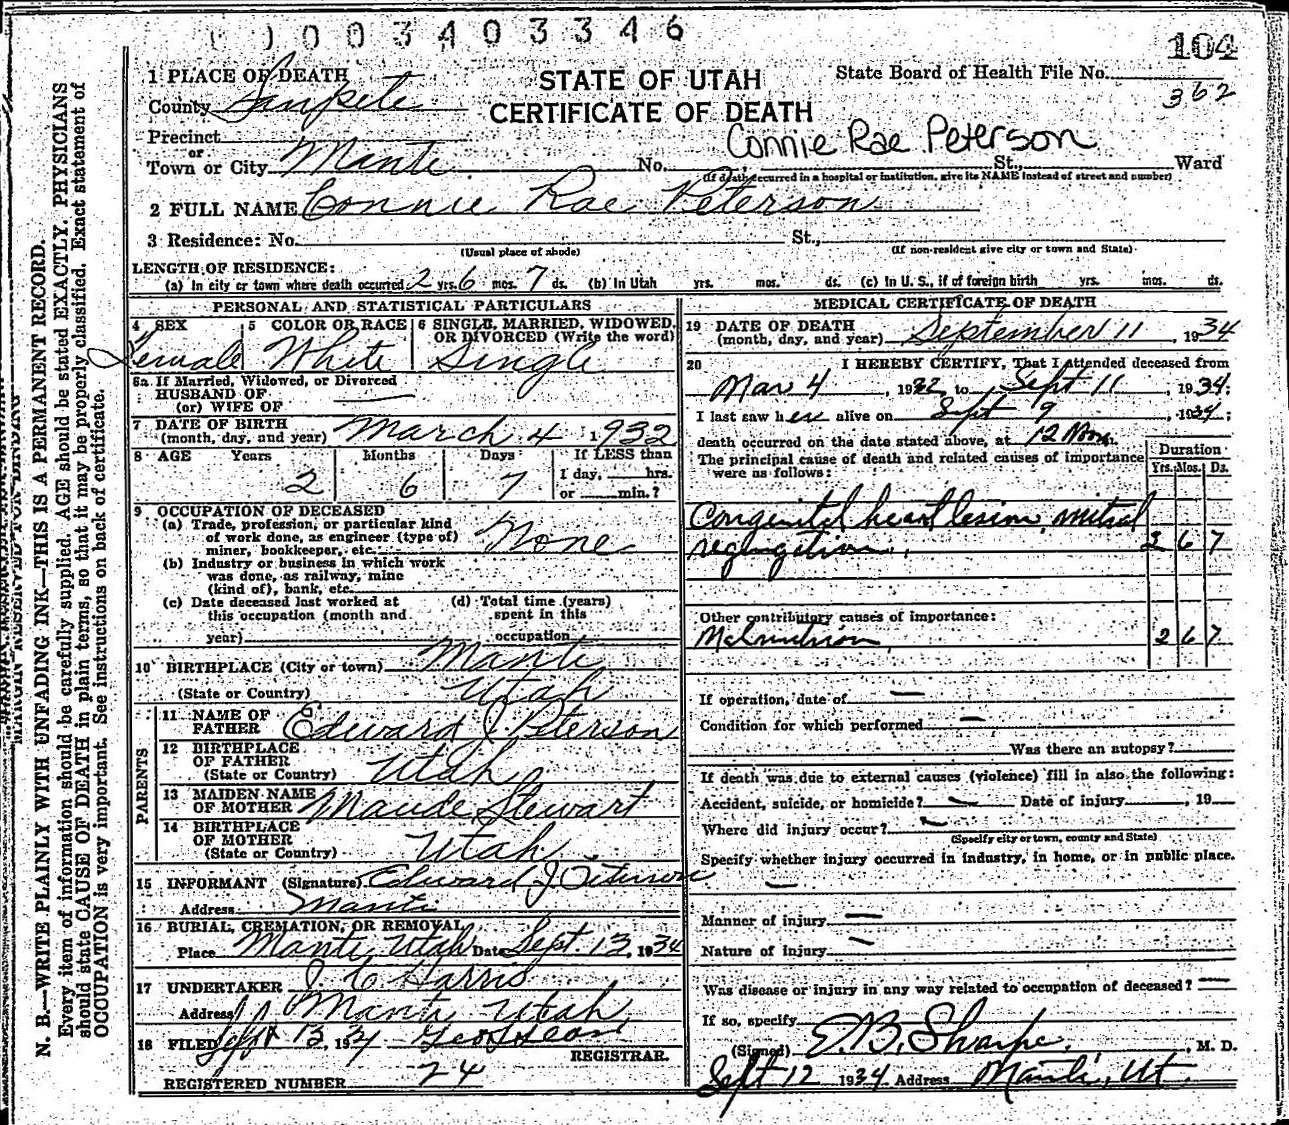 0 0 3 4 0 3 3 4 6
104
1 PLACE OF DEATH
County Sanpete
STATE OF UTAH
CERTIFICATE OF DEATH
State Board of Health File No.
362
Precinct
or
Town or City Manti No. Connie Rae Peterson St., Ward
(If death occurred in a hospital or institution, give its NAME instead of street and number)
2 FULL NAME Connie Rae Peterson
3 Residence: No. St.,
(Usual place of abode) (If non-resident give city or town and State)
LENGTH OF RESIDENCE:
(a) In city or town where death occurred 2 yrs. 6 mos. 7 ds. (b) In Utah yrs. mos. ds. (c) In U. S., if of foreign birth yrs. mos. ds.
PERSONAL AND STATISTICAL PARTICULARS
4 SEX Female
5 COLOR OR RACE White
6 SINGLE, MARRIED, WIDOWED, OR DIVORCED (Write the word) Single
6a If Married, Widowed, or Divorced
HUSBAND OF
(or) WIFE OF
7 DATE OF BIRTH
(month, day, and year) March 4 1932
8 AGE Years Months Days If LESS than
2 6 7 1 day, hrs.
or min.?
9 OCCUPATION OF DECEASED
(a) Trade, profession, or particular kind
of work done, as engineer (type of)
miner, bookkeeper, etc. None
(b) Industry or business in which work
was done, as railway, mine
(kind of), bank, etc.
(c) Date deceased last worked at
this occupation (month and
year)
(d) Total time (years)
spent in this
occupation
10 BIRTHPLACE (City or town) Manti
(State or Country) Utah
PARENTS
11 NAME OF
FATHER Edward J. Peterson
12 BIRTHPLACE
OF FATHER
(State or Country) Utah
13 MAIDEN NAME
OF MOTHER Maude Stewart
14 BIRTHPLACE
OF MOTHER
(State or Country) Utah
15 INFORMANT (Signature) Edward J Peterson
Address Manti
16 BURIAL, CREMATION, OR REMOVAL
Place Manti, Utah Date Sept. 13, 1934
17 UNDERTAKER Harris
Address Manti Utah
18 FILED Sept 13, 1934
REGISTRAR.
REGISTERED NUMBER 24
MEDICAL CERTIFICATE OF DEATH
19 DATE OF DEATH
(month, day, and year) September 11, 1934
20 I HEREBY CERTIFY, That I attended deceased from
Mar 4, 1932 to Sept 11, 1934;
I last saw her alive on Sept 9, 1934;
death occurred on the date stated above, at 12 Noon m.
The principal cause of death and related causes of importance
were as follows:
Duration
Yrs. Mos. Ds.
Congenital heart lesion, mitral
regurgitation. 2 6 7
Other contributory causes of importance:
Malnutrition 2 6 7
If operation, date of —
Condition for which performed —
Was there an autopsy?
If death was due to external causes (violence) fill in also the following:
Accident, suicide, or homicide? — Date of injury , 19
Where did injury occur? —
(Specify city or town, county and State)
Specify whether injury occurred in industry, in home, or in public place.
—
Manner of injury —
Nature of injury —
Was disease or injury in any way related to occupation of deceased? —
If so, specify
(Signed) E. B. Sharpe, M. D.
Sept 12 1934 Address Manti, Ut.
N. B.—WRITE PLAINLY WITH UNFADING INK—THIS IS A PERMANENT RECORD.
Every item of information should be carefully supplied. AGE should be stated EXACTLY. PHYSICIANS
should state CAUSE OF DEATH in plain terms, so that it may be properly classified. Exact statement of
OCCUPATION is very important. See instructions on back of certificate.